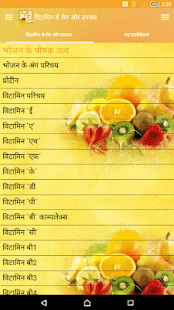 3:38
विटामिन से रोग और उपचार
विटामिन से रोग और उपचार
नए एप्लीकेशन
भोजन के पोषक तत्व
भोजन के अंग परिचय
प्रोटीन
विटामिन परिचय
विटामिन `ई`
विटामिन `ए`
विटामिन `एच`
विटामिन `एफ`
विटामिन `के`
विटामिन `डी`
विटामिन `पी`
विटामिन `बी` काम्पलेक्स
विटामिन `सी`
विटामिन बी1
विटामिन बी2
विटामिन बी3
विटामिन बी4